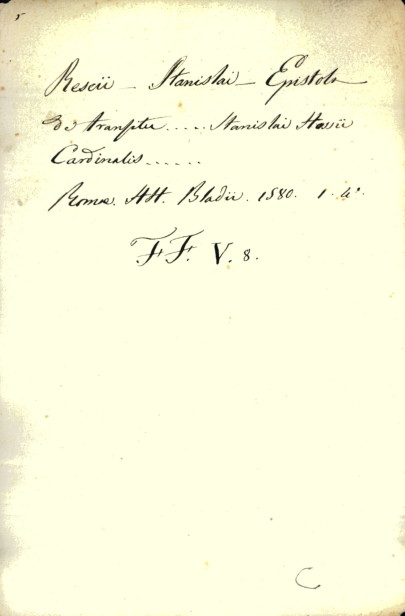 5
Rescii – Stanislai – Epistola
de transitu ..... Stanislai Hosii
Cardinalis ......
Romæ. HH. Bladii. 1580. 1. 4°.
FF. V. 8.
C